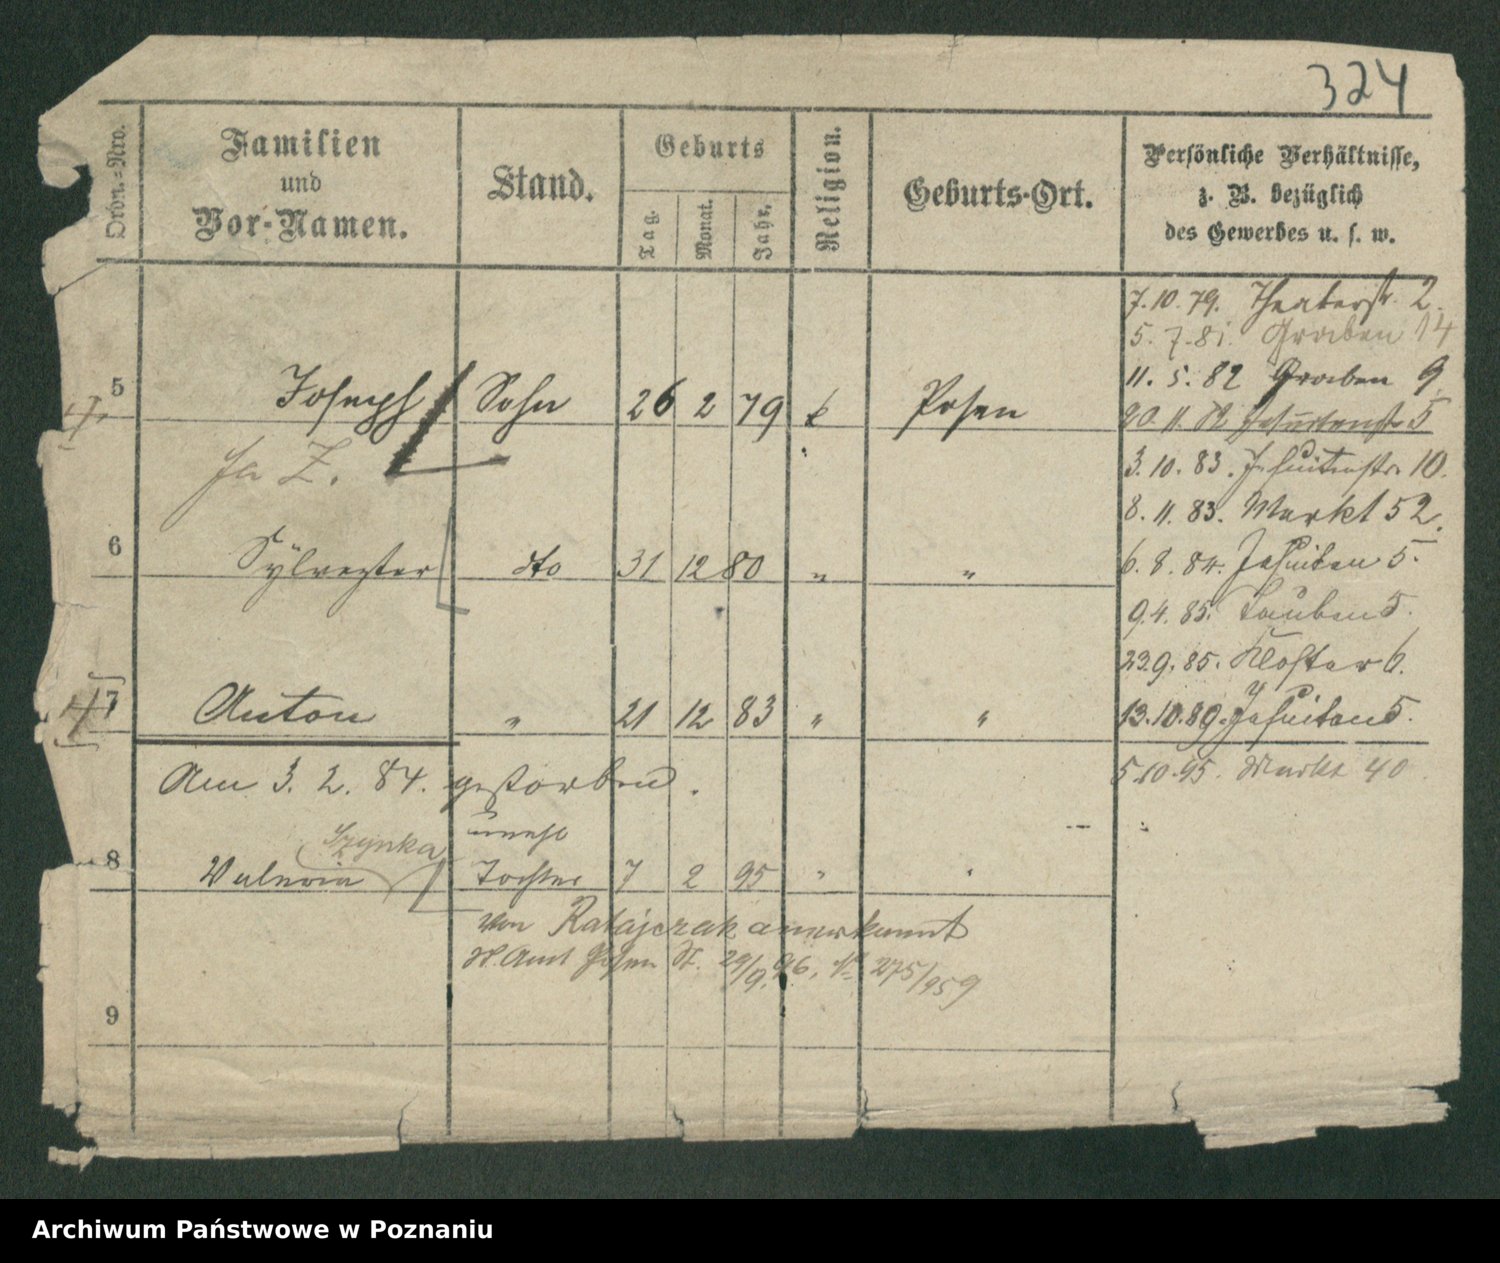 324
Ordn.=Nro.
Familien
und
Vor-Namen.
Stand.
Geburts
Tag.
Monat.
Jahr.
Religion.
Geburts-Ort.
Persönliche Verhältnisse,
z. B. bezüglich
des Gewerbes u. s. w.
7.10.79. Theaterstr. 2.
5.7.81. Graben 14
11.5.82 Graben 9
5 Joseph Sohn 26 2 79 k Posen
20.11.82 Jesuitenstr 5
3.10.83. Jesuitenstr. 10.
8.11.83. Markt 52.
6 Sylvester dto 31 12 80 " "
6.8.84. Jesuiten 5.
9.4.85. Tauben 5.
23.9.85. Kloster 6.
7 Anton " 21 12 83 " "
13.10.89. Jesuiten 5.
Am 3. 2. 84. gestorben.
5.10.95. Markt 40.
Szynka
unehl
8 Tochter 7 2 95 " "
von Ratajczak anerkannt
St. Amt Posen St. 29/9.96, No 275/959
9
Archiwum Państwowe w Poznaniu